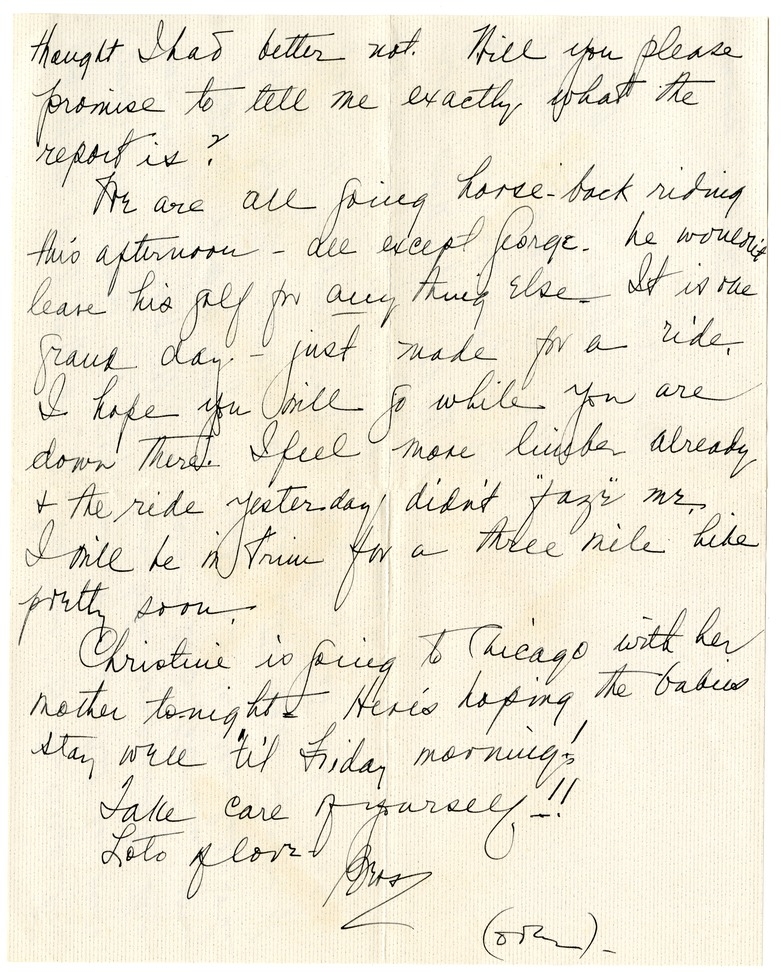 thought I had better not. Will you please
promise to tell me exactly what the
report is?
We are all going horse-back riding
this afternoon - all except George. he wouldn't
leave his golf for any thing else. It is one
grand day - just made for a ride.
I hope you will go while you are
down there. I feel more limber already
& the ride yesterday didn't "faze" me.
I will be in trim for a three mile hike
pretty soon.
Christine is going to Chicago with her
mother tonight - Here's hoping the babies
stay well 'til Friday morning!
Take care of yourself -!!
Lots of love -
(over) -